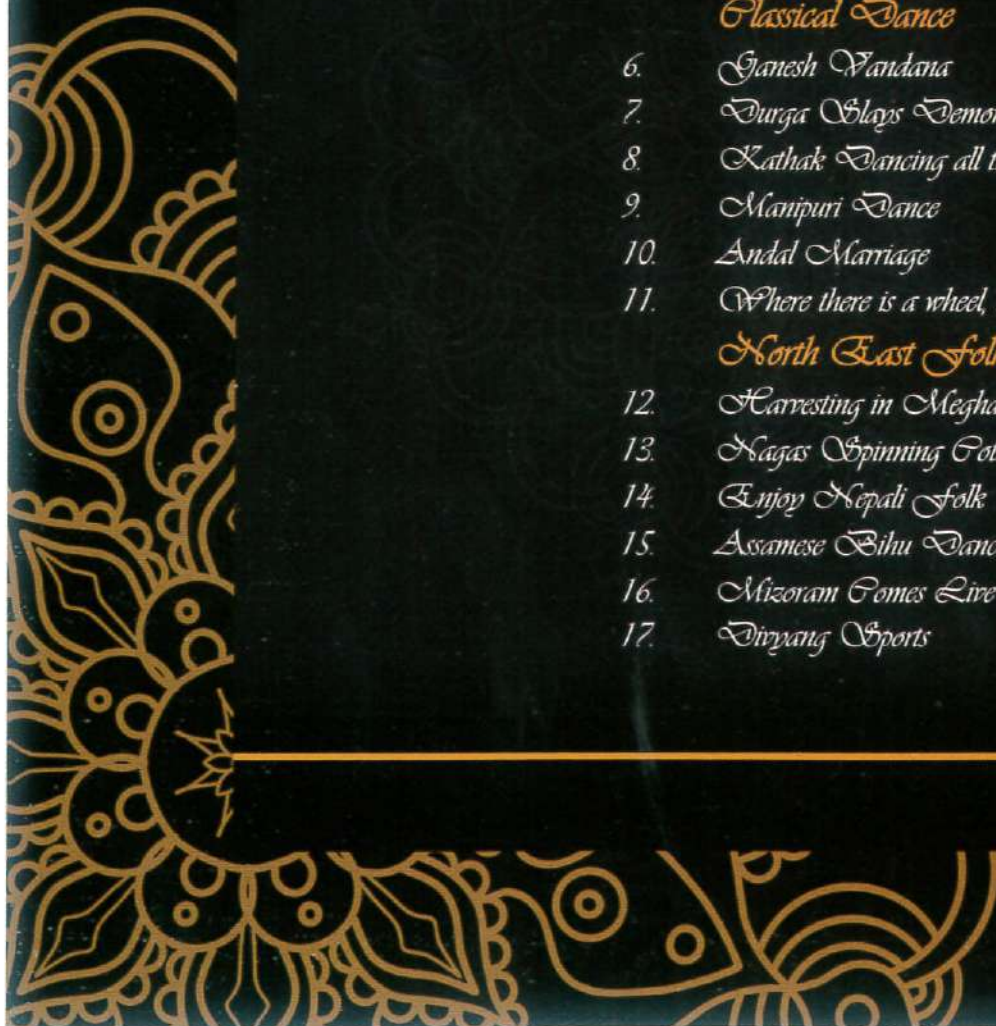 Classical Dance
6. Ganesh Vandana
7. Durga Slays
8. Kathak Dancing all
9. Manipuri Dance
10. Andal Marriage
11. Where there is a wheel,
North East
12. Harvesting in
13. Nagas Spinning
14. Enjoy Nepali Folk
15. Assamese Bihu
16. Mizoram Comes Live
17. Divyang Sports